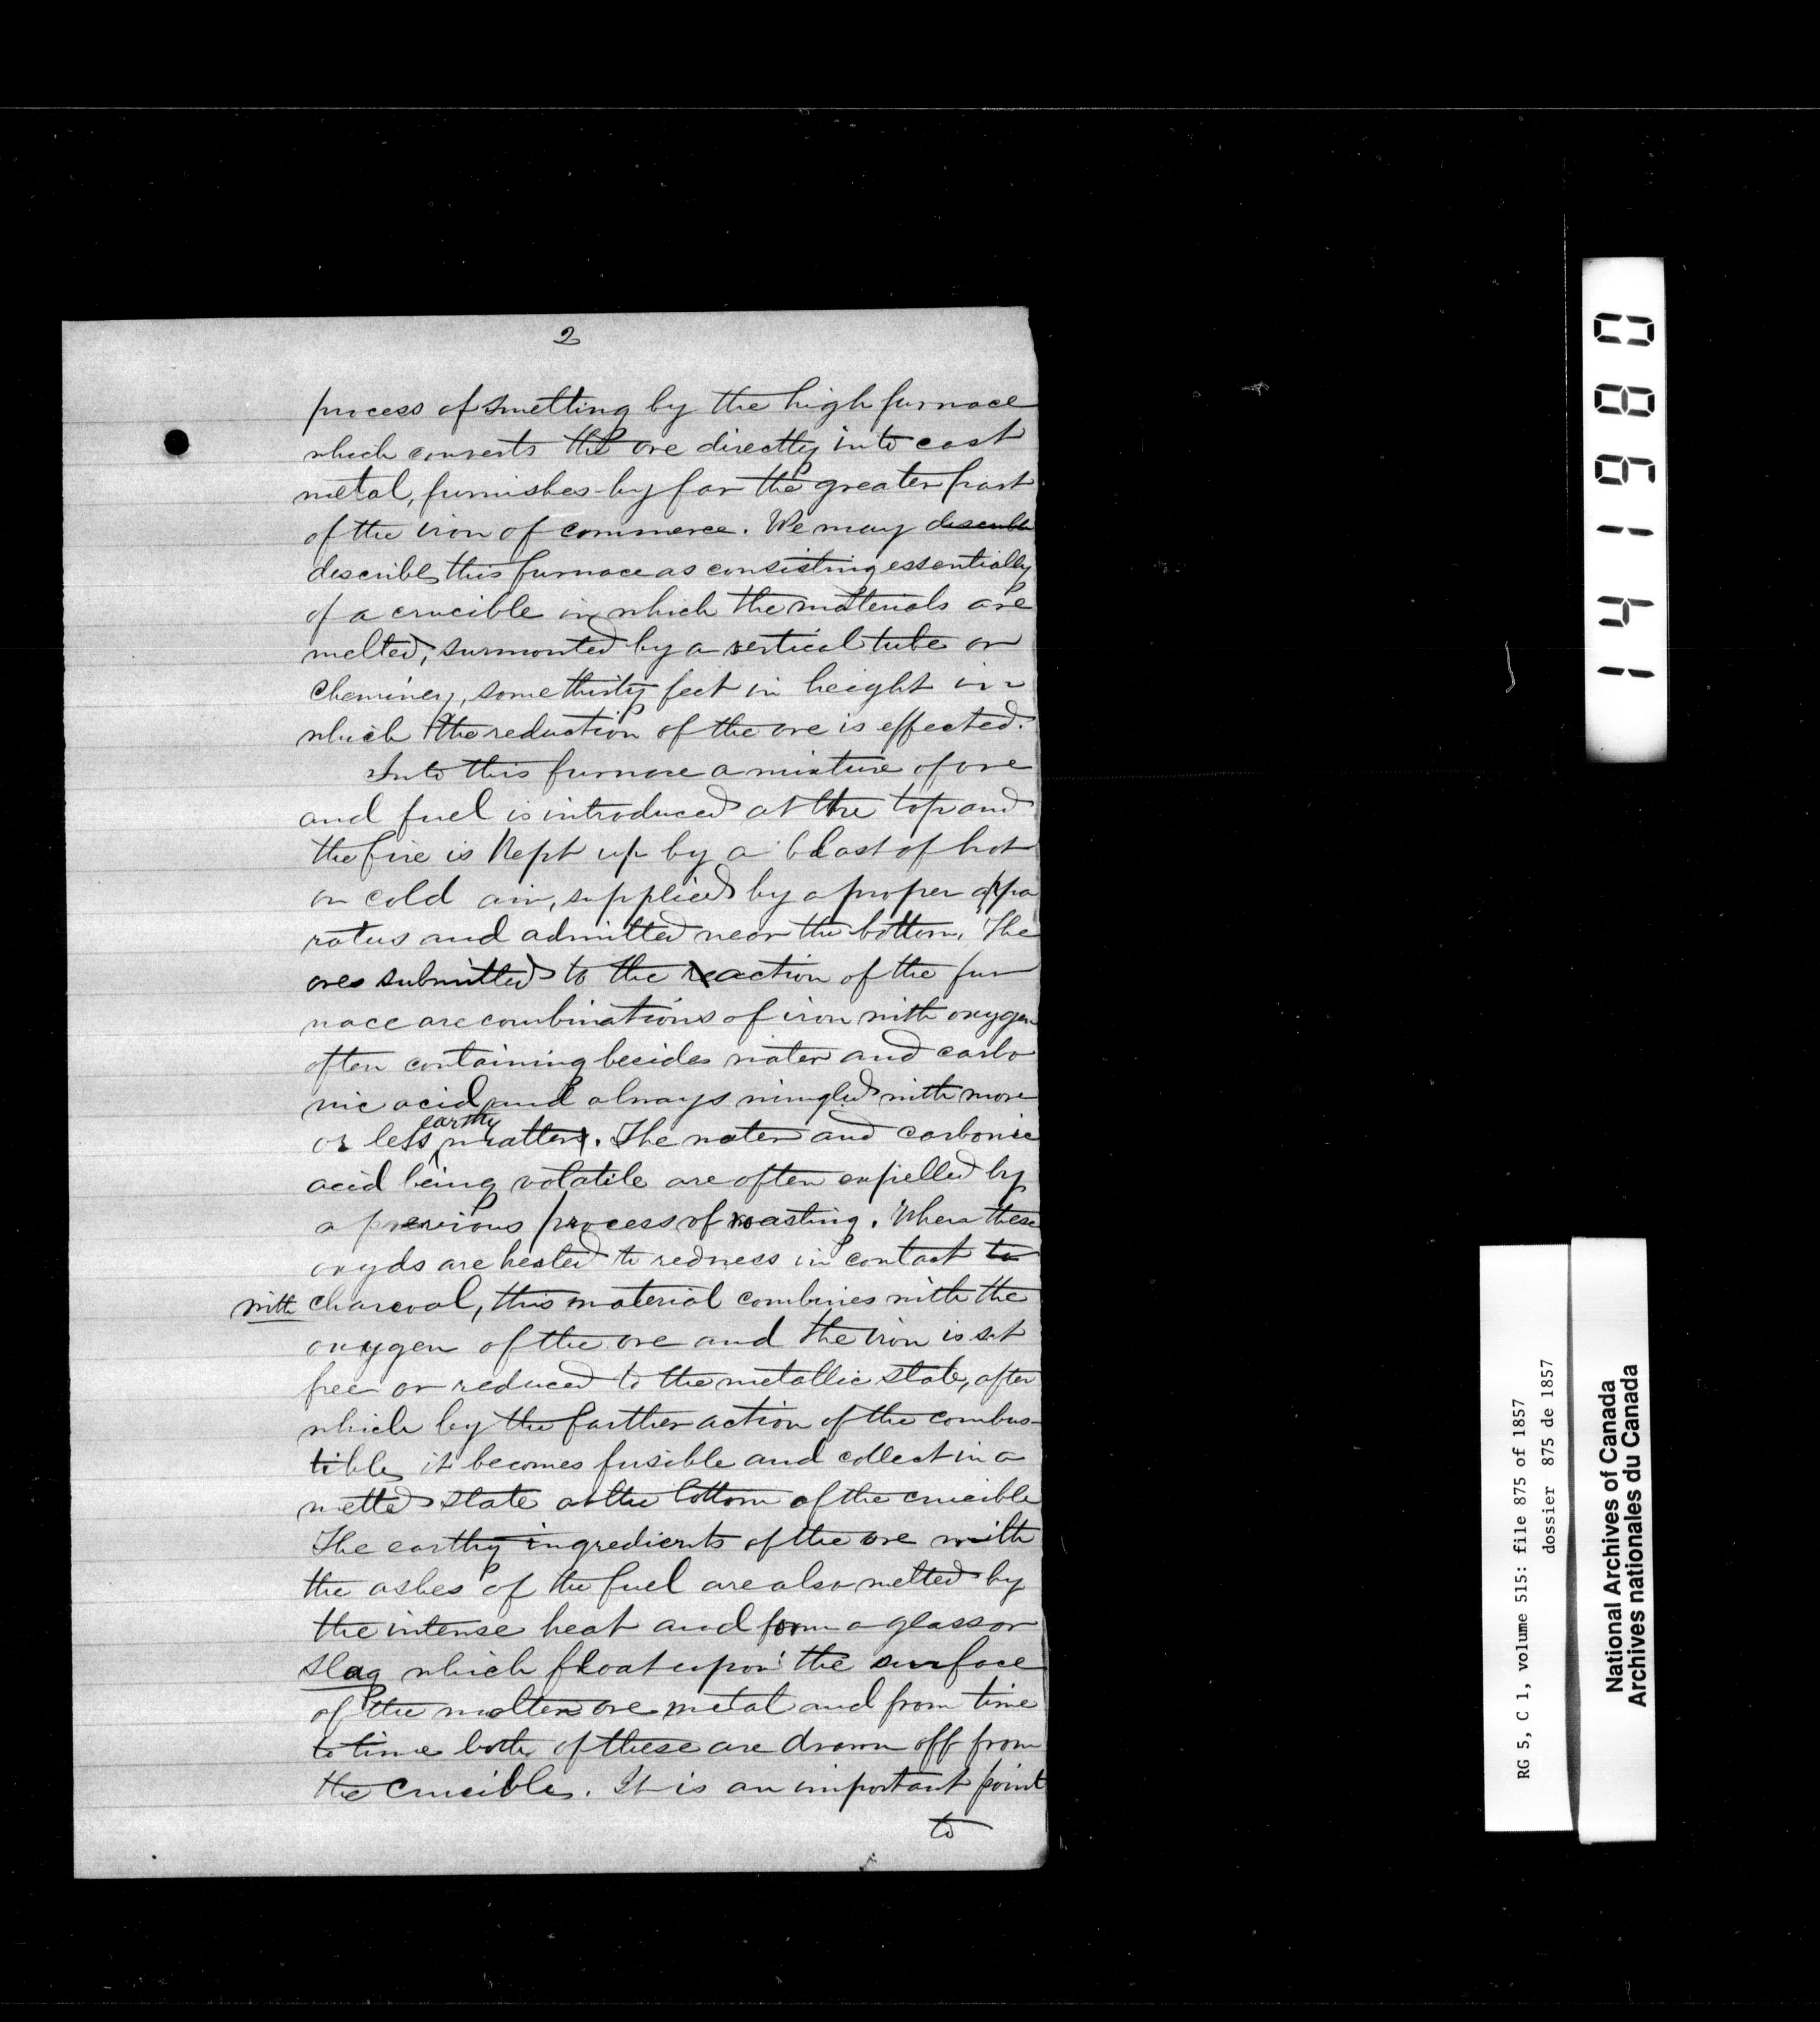 2
process of smelting by the high furnace
which converts the ore directly into cast
metal, furnishes by far the greater part
of the iron of commerce. We may describe
describe this furnace as consisting essentially
of a crucible in which the materials are
melted, surmounted by a vertical tube or
Cheminey, some thirty feet in height in
which the reduction of the ore is effected.
Into this furnace a mixture of ore
and fuel is introduced at the top and
the fire is kept up by a blast of hot
or cold air, supplied by a proper appa
ratus and admitted near the bottom. The
ores submitted to the reaction of the fur
nace are combinations of iron with oxygen
often containing besides water and carbo
nic acid and always mingled with more
or less earthy matters. The water and carbonic
acid being volatile are often expelled by
a previous process of roasting. When these
oxyds are heated to redness in contact to
with charcoal, this material combines with the
oxygen of the ore and the iron is set
free or reduced to the metallic state, after
which by the farther action of the combus-
tible, it becomes fusible and collect in a
melted state at the bottom of the crucible
The earthy ingredients of the ore with
the ashes of the fuel are also melted by
the intense heat and form a glass or
slag which float upon the surface
of the molten ore metal and from time
to time both of these are drawn off from
the Crucible. It is an important point
to
141980
RG 5, C 1, volume 515: file 875 of 1857
dossier 875 de 1857
National Archives of Canada
Archives nationales du Canada